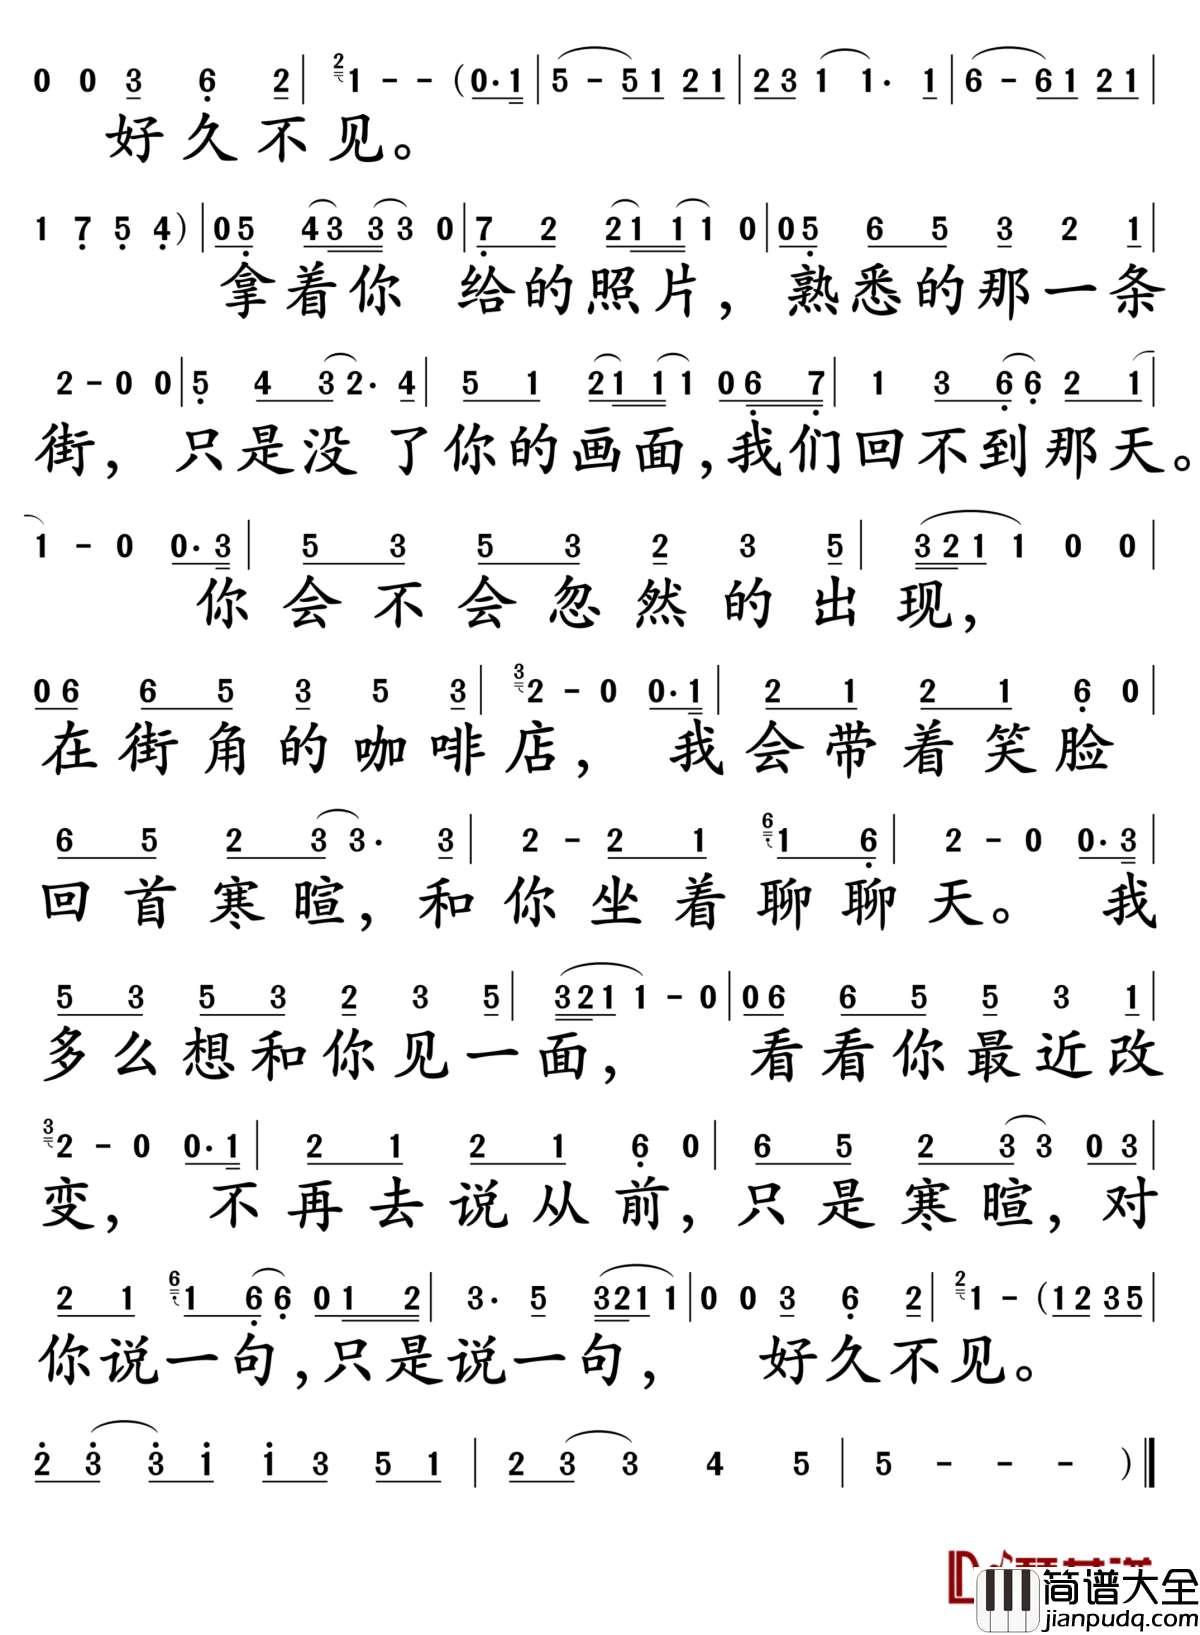 0 0 3 6 2 | 2 1 - - ( 0 · 1 | 5 - 5 1 2 1 | 2 3 1 1 · 1 | 6 - 6 1 2 1 |
好久不见。
1 7 5 4 ) | 0 5 4 3 3 3 0 | 7 2 2 1 1 1 0 | 0 5 6 5 3 2 1 |
拿着你 给的照片， 熟悉的那一条
2 - 0 0 | 5 4 3 2 · 4 | 5 1 2 1 1 1 0 6 7 | 1 3 6 6 2 1 |
街， 只是没了你的画面，我们回不到那天。
1 - 0 0 · 3 | 5 3 5 3 2 3 5 | 3 2 1 1 0 0 |
你会不会忽然的出现，
0 6 6 5 3 5 3 | 3 2 - 0 0 · 1 | 2 1 2 1 6 0 |
在街角的咖啡店， 我会带着笑脸
6 5 2 3 3 · 3 | 2 - 2 1 6 1 6 | 2 - 0 0 · 3 |
回首寒暄，和你坐着聊聊天。 我
5 3 5 3 2 3 5 | 3 2 1 1 - 0 | 0 6 6 5 5 3 1 |
多么想和你见一面， 看看你最近改
3 2 - 0 0 · 1 | 2 1 2 1 6 0 | 6 5 2 3 3 0 3 |
变， 不再去说从前，只是寒暄，对
2 1 6 1 6 6 0 1 2 | 3 · 5 3 2 1 1 | 0 0 3 6 2 | 2 1 - ( 1 2 3 5 |
你说一句，只是说一句， 好久不见。
2 3 3 1 1 3 5 1 | 2 3 3 4 5 | 5 - - - ) ||
简谱大全
jianpudq.com